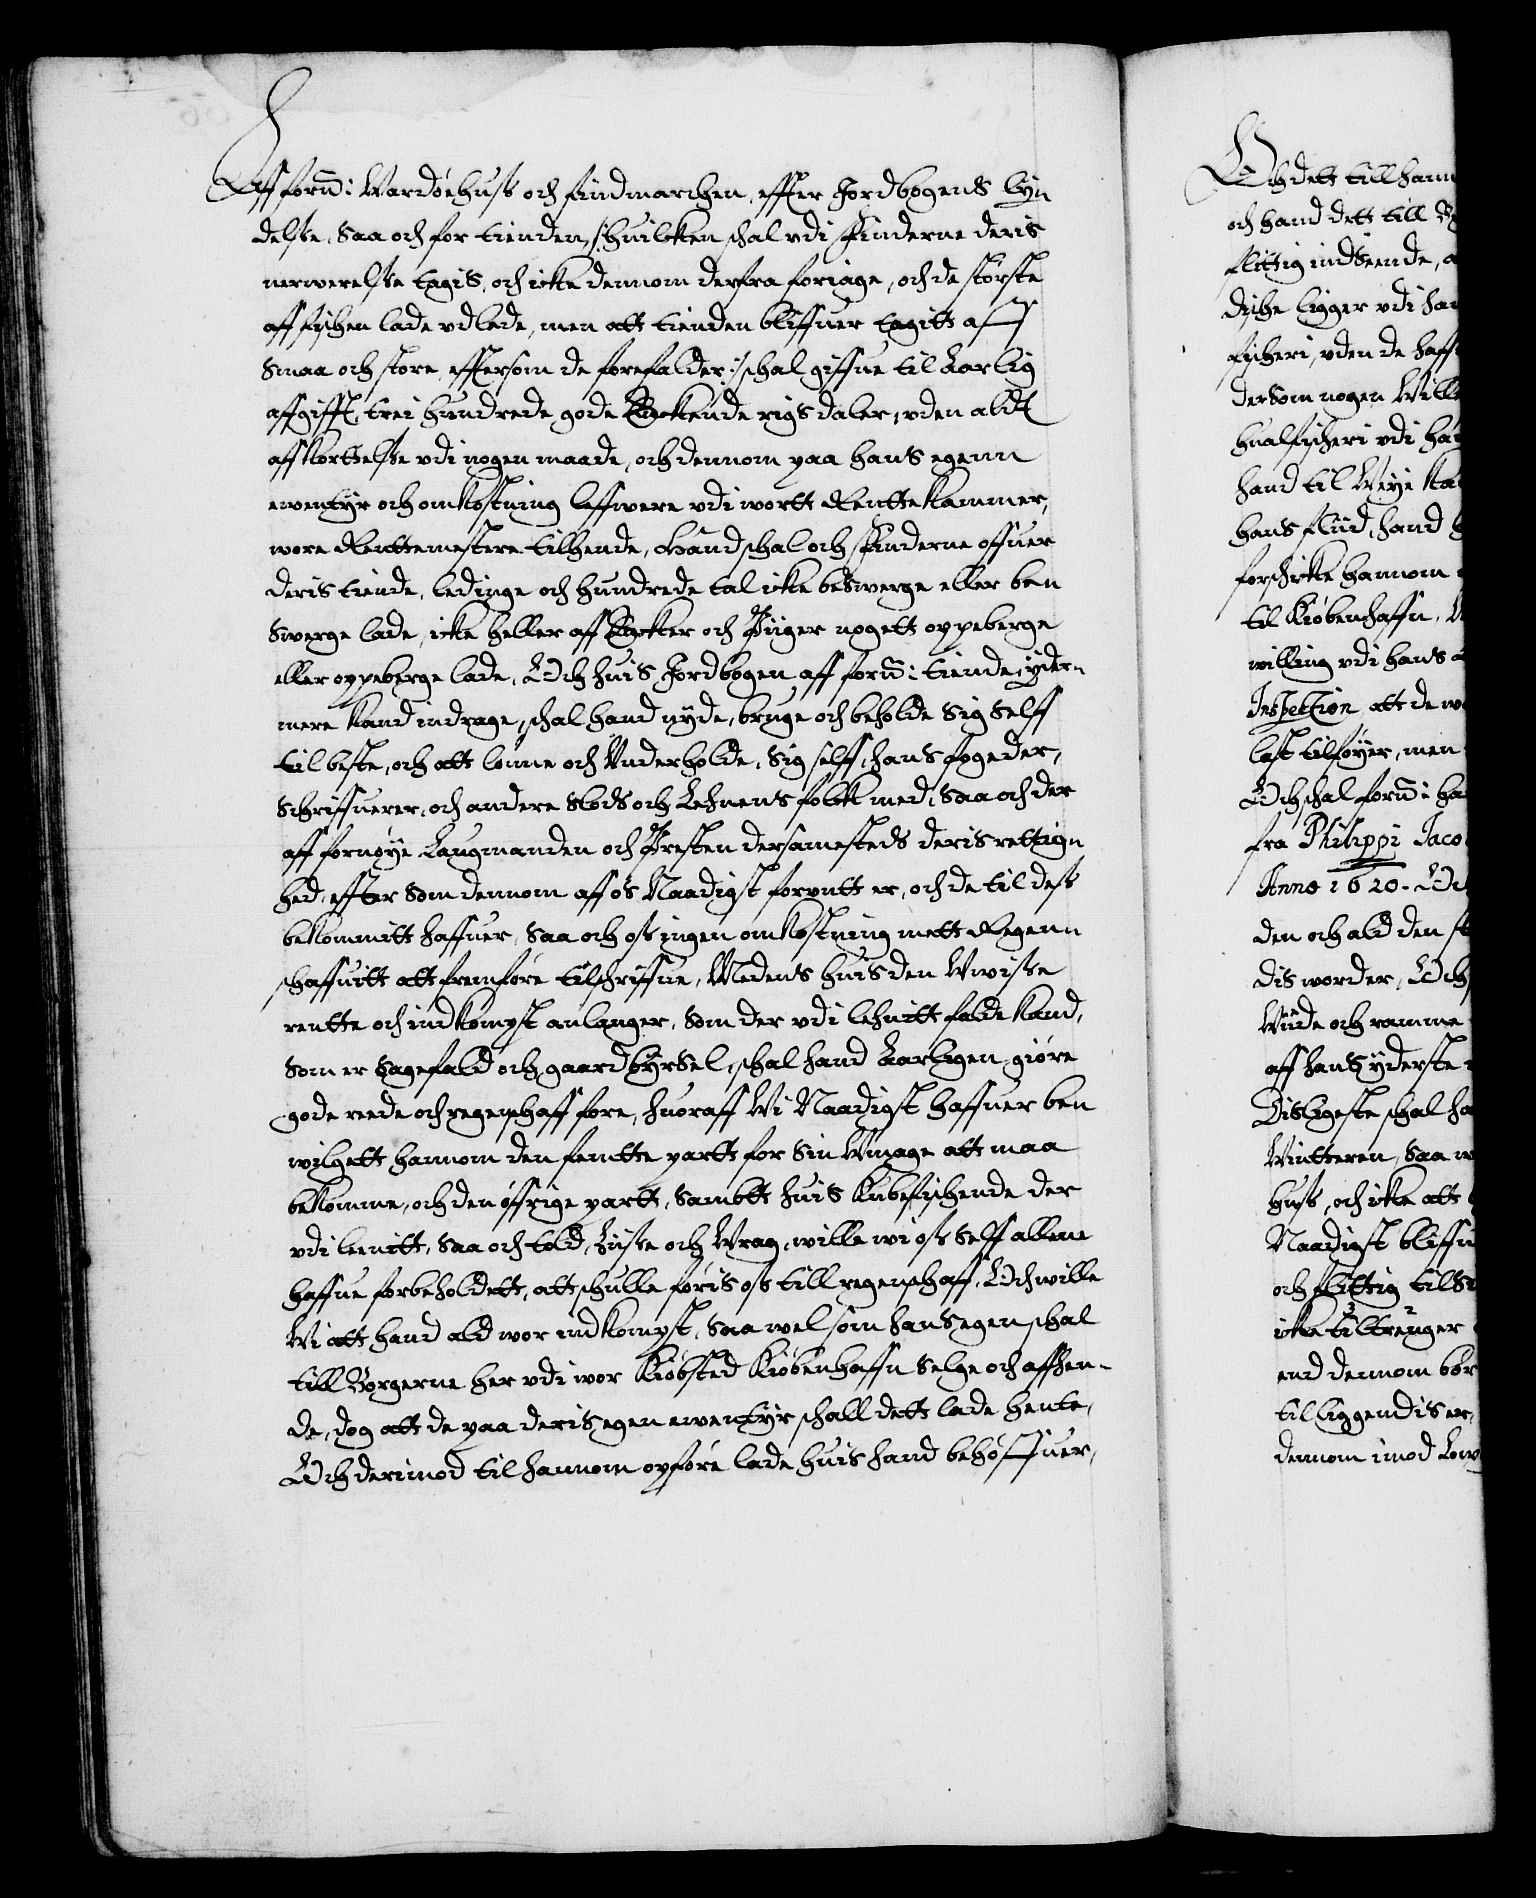 Aff forn: Wardøehuss och findmarchen, effter Jordbogens lyn
delsse, Saa och for tienden, /:huilcken schal vdi Finderne deris
nerwerelsse tagis, och icke dennom derfra foriage, och de störste
aff fischen lade vdlede, men att tienden bliffuer tagitt aff
smaa och store, effttersom de forefalder:/ schal giffue til Aarlig
affgifft, trei hundrede gode Enckende rigs daler, vden aldt
affkorttelsse vdi nogen maade, och dennom paa hans egenn
euentyr och omkostning leffwere vdi wortt Rentte Kammer,
wore Renttemestere tilhende, Hand schal och Finderne offuer
deris tiende, ledinge och hundrede tal icke beswerge eller ben
swerge lade, icke heller aff Encker och Piiger nogett oppeberge
eller oppeberge lade, Och huis Jordbogen aff forn: tiende yder-
mere kand indrage, schal hand nyde, bruge och beholde Sig Selff
til beste, och att lönne och Vnderholde, Sig selff, hans fogeder,
Schriffuerer, och andere Slods och Lehnens folck med, Saa och der
aff fornøye Laugmanden och Presten dersamesteds deris rettig-
hed, effter som dennom aff os Naadigst forundt er, och de til dess
bekommitt haffuer, Saa och oss ingen omkostning mett Regenn
schaffuitt att fremföre tilschriffue, Medens huis den Vwisse
rentte och indkompst anlanger, som der vdi lehnitt falde kand,
Som er Sagefald och gaardbyrsel, schal hand Aarligen giöre
gode reede och regenschaff fore, huoraff Wi Naadigst haffuer ben
wilgett hannom den femtte partt for Sin Vmage att maa
bekomme, och den öffrige partt, Sambtt huis Kubefischende der
vdi leenitt, Saa och told, Siise och Wrag, wille wi oss Selff allene
haffue forbeholdett, att schulle föris os till regenschaff, Och wille
Wi att hand ald wor indkompst, Saa wel som hans egen schal
till Borgerne her vdi wor Kiöbsted Kiöbenhaffn Selge och affhen-
de, dog att de paa deris egen euentyr schall dett lade hente,
Och derimod til hannom opföre lade huis hand behöffuer,
Och dett till hann
och hand dett till
flittig indseende,
Dische ligger vdi
fischeri, vden de haff
dersom nogen Wille
hualfischeri vdi
hand til Weye
hans fliid, hand
forschicke hannom
til Kiöbenhaffn,
willing vdi hans
Inspection att de
last tilföyer, men
Och schal forn: ha
fra Philippi Jaco
Anno 1620. Och
den och ald den
dis worder, Och
Wiide och ramme
aff hans yderste
Disligeste schal ha
Wintteren, Saa
huss, och icke att
Naadigst bliffu
och flittig til
icke tiltrenger
end dennom bör
til liggendis er,
dennom imod